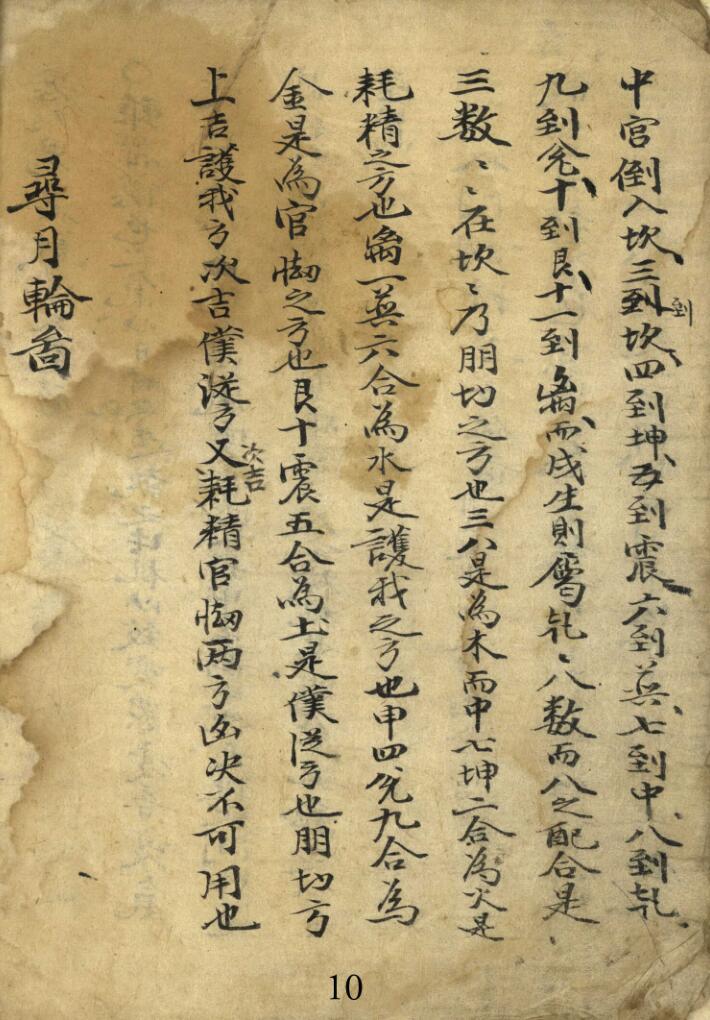 中宮倒入坎三到坎四到坤五到震六到巽七到中八到乾
到
九到兊十到艮十一到离而戌生則屬乾〻八数而八之配合是〻
三数〻在坎〻乃朋切之方也三八是為木而中七坤二合為火是
耗精之方也离一巽六合為水是護我之方也申四兊九合為
金是為官之方也艮十震五合為土是僕從方也朋切方
上吉護我方次吉僕從方又耗精官两方凶决不可用也
次吉
尋月輪啚
10